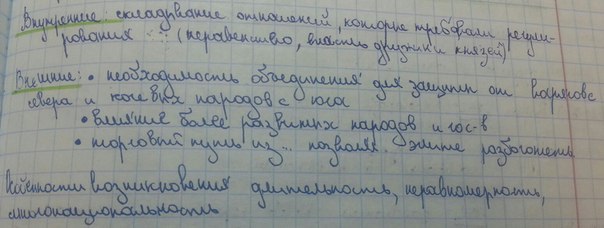 Внутренние: складывание отношений, которые требовали регули-
рования (неравенство, власть дружины и князей)
Внешние: • необходимость объединения для защиты от варягов с
севера и кочевых народов с юга
• влияние более развитых народов и гос-в
• торговый путь из... позволял элите разбогатеть
Особенности возникновения длительность, неравномерность,
многонациональность